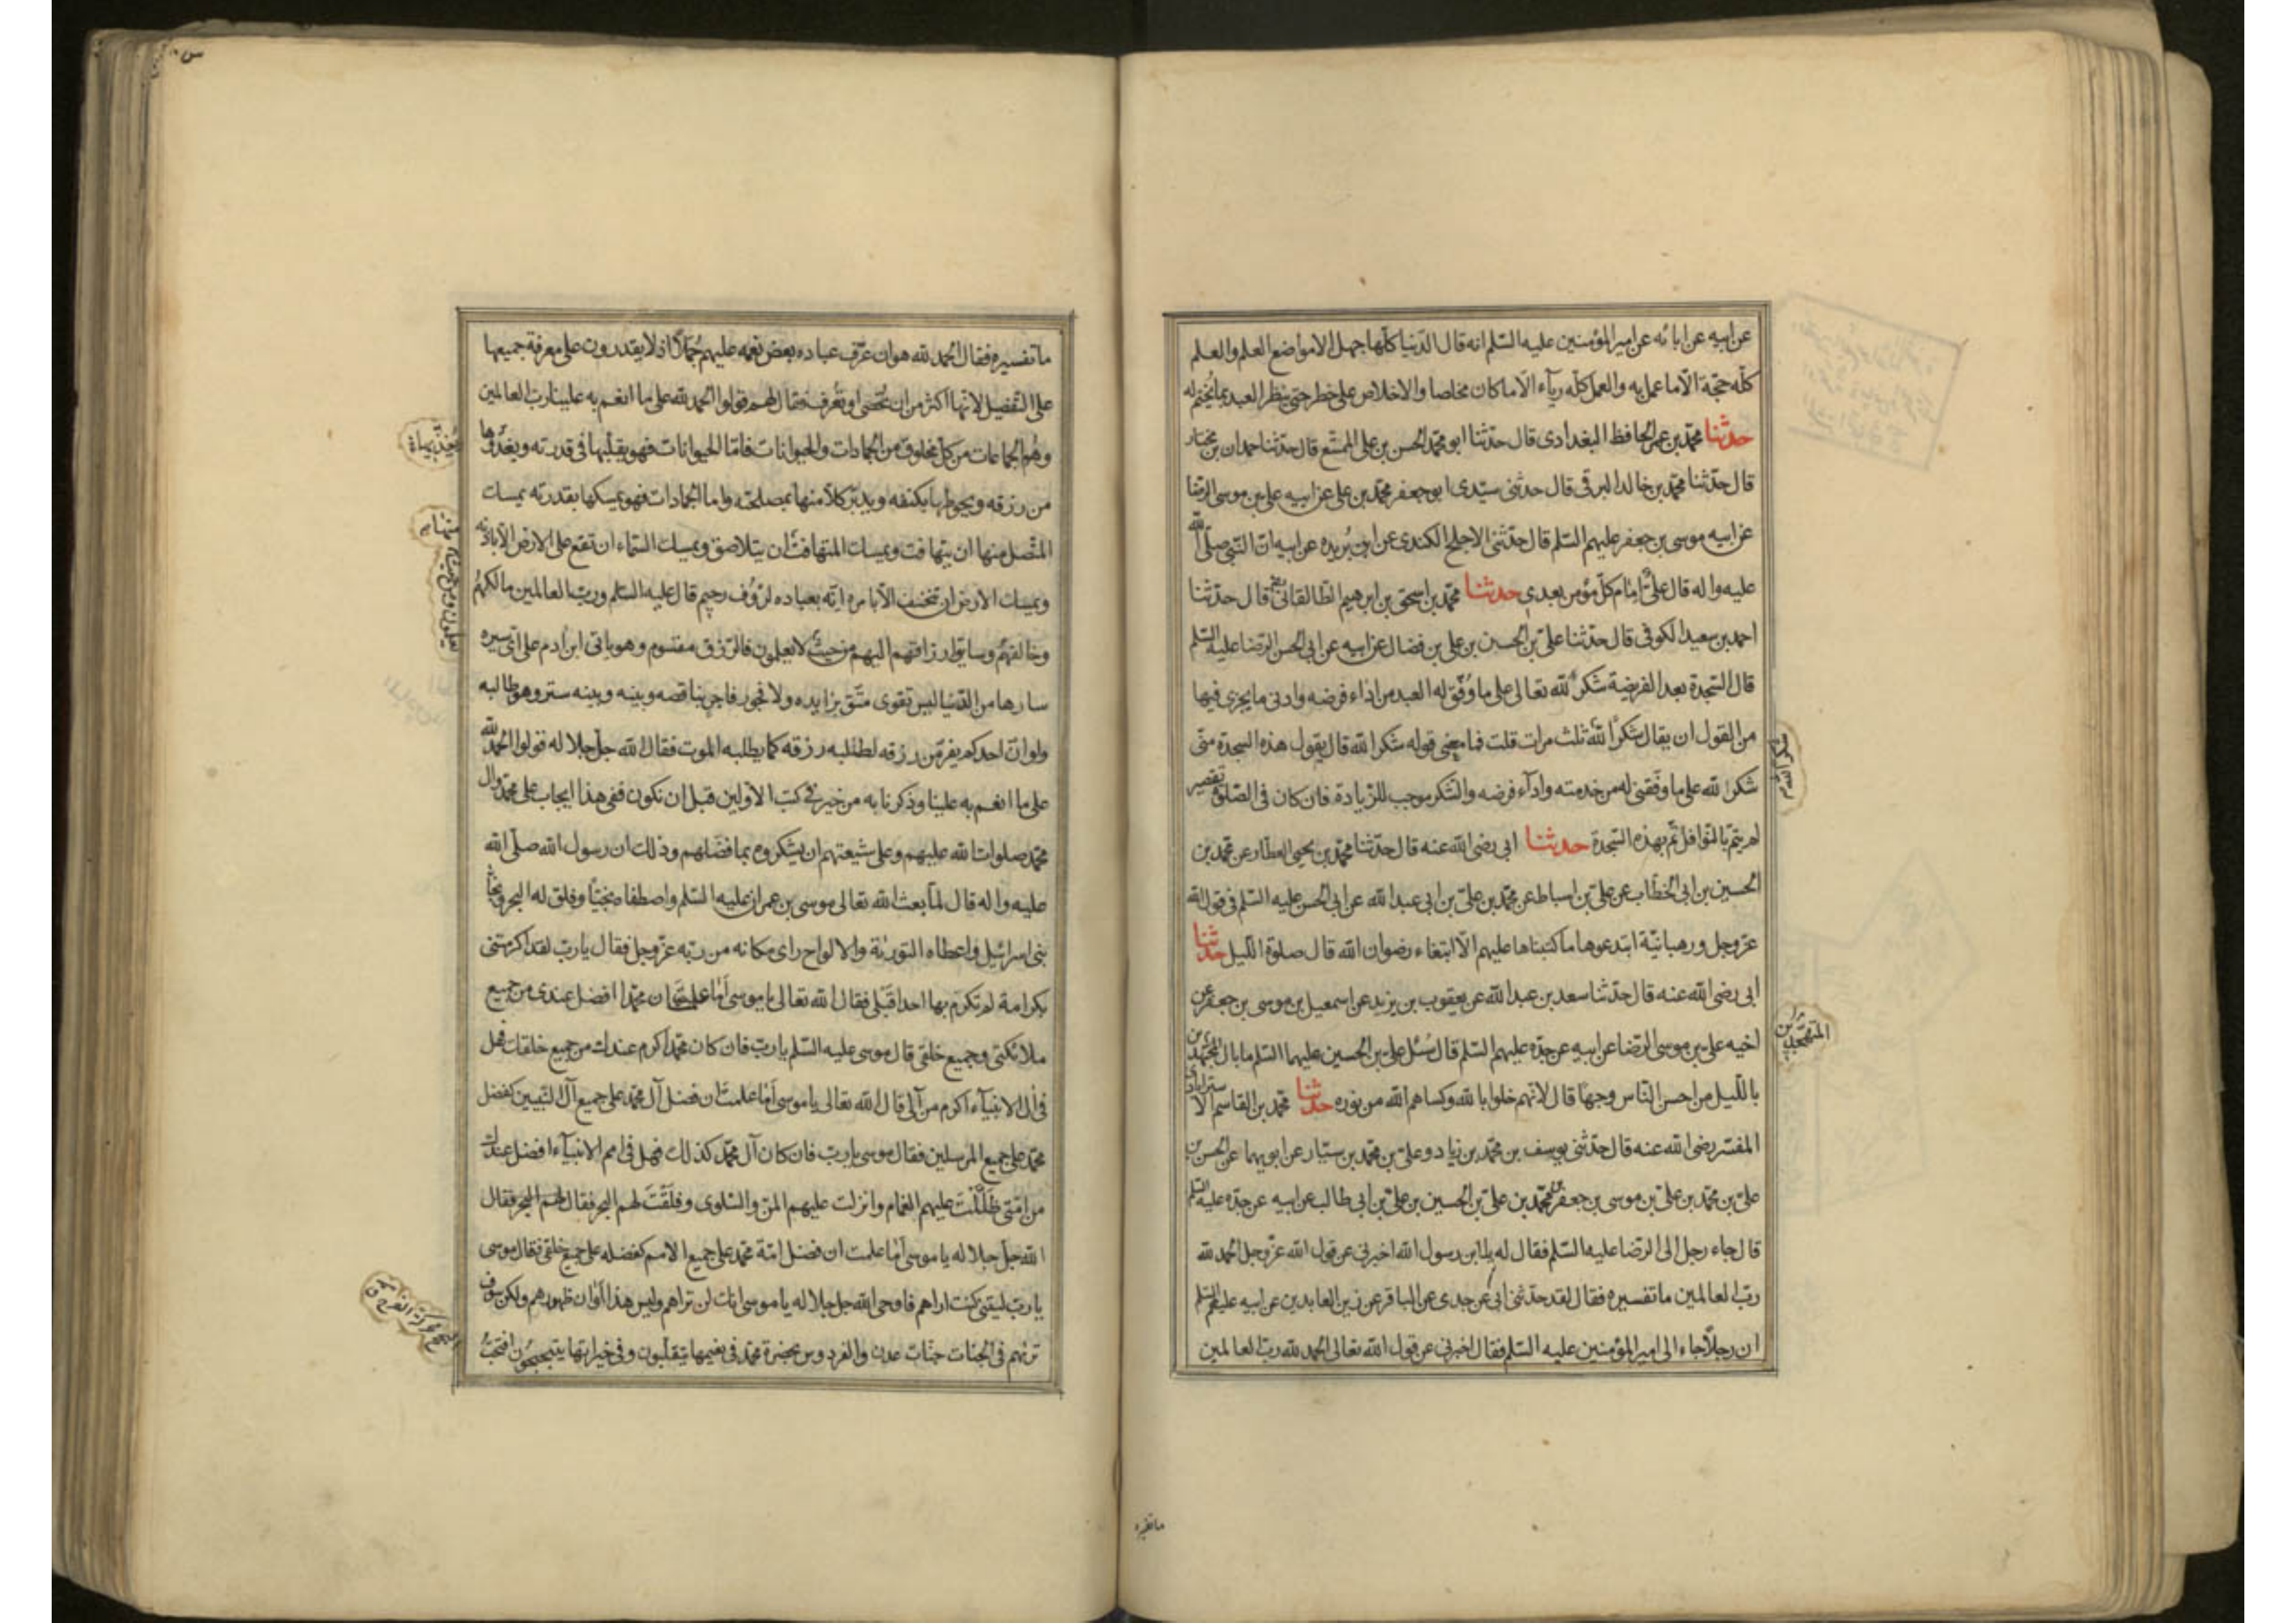 عن ابيه عن ابائه عن امير المؤمنين عليه السّلم انه قال الدّنيا كلّها جهل الا مواضع العلم والعلم
كلّه حجّة الّا ما عمل به والعمل كلّه ريآء الّا ما كان مخلصا والاخلاص على خطر حتى ينظر العبد بما يُختم له
حدثنا محمّد بن عمر الحافظ البغدادى قال حدّثنا ابو محمّد الحسن بن على المتمتّع قال حدّثنا حمدان بن مختار
قال حدّثنا محمّد بن خالد البرقى قال حدثنى سيّدى ابو جعفر محمّد بن على عن ابيه على بن موسى الرضا
عن ابيه موسى بن جعفر عليهم السّلم قال حدّثنى الاجلح الكندى عن ابن بُريده عن ابيه انّ النّبى صلّى الله
عليه واله قال علىٌّ امام كلّ مؤمن بعدى حدثنا محمّد بن اسحق بن ابرهيم الطّالقانى رضه قال حدّثنا
احمد بن سعيد الكوفى قال حدّثنا علىّ بن الحسين بن على بن فضال عن ابيه عن ابى الحسن الرّضا عليه السّلم
قال السّجدة بعد الفريضة شكرًا لله تعالى على ما وُفّق له العبد من اداء فرضه وادنى ما يجزى فيها
من القول ان يقال شكرًا لله ثلث مرات قلت فما معنى قوله شكرا لله قال يقول هذه السجدة منّى
شكرا لله على ما وفّقنى له من خدمته وادآء فرضه والشّكر موجب للزّيادة فان كان فى الصّلوة تقصير
لم يتمّ بالنّوافل تمّ بهذه السّجدة حدثنا ابى رضى الله عنه قال حدّثنا محمّد بن يحيى العطّار عن محمّد بن
الحسين بن ابى الخطّاب عن علىّ بن اسباط عن محمّد بن علىّ بن ابى عبد الله عن ابى الحسن عليه السّلم فى قول الله
عزّ وجل ورهبانيّة ابتدعوها ما كتبناها عليهم الّا ابتغاء رضوان الله قال صلوة اللّيل حدثنا
ابى رضى الله عنه قال حدّثنا سعد بن عبد الله عن يعقوب بن يزيد عن اسمعيل بن موسى بن جعفر عن
اخيه على بن موسى الرّضا عن ابيه عن جدّه عليهم السّلم قال سُئل علىّ بن الحسين عليهما السّلم ما بال المجتهدين
باللّيل من احسن النّاس وجهًا قال لانّهم خلوا بالله وكساهم الله من نوره حدثنا محمّد بن القاسم الاسترابادى
المفسّر رضى الله عنه قال حدّثنى يوسف بن محمّد بن زياد وعلىّ بن محمّد بن سيّار عن ابويهما عن الحسن بن
علىّ بن محمّد بن علىّ بن موسى بن جعفر بن محمّد بن علىّ بن الحسين بن علىّ بن ابى طالب عن ابيه عن جدّه عليه السّلم
قال جاء رجل الى الرّضا عليه السّلم فقال له يا ابن رسول الله اخبرنى عن قول الله عزّ وجل الحمد لله
ربّ العالمين ما تفسيره فقال لقد حدّثنى ابى عن جدى عن الباقر عن زين العابدين عن ابيه عليهم السّلم
ان رجلًا جاء الى امير المؤمنين عليه السّلم فقال اخبرنى عن قول الله تعالى الحمد لله ربّ العالمين
شكرا لله
المتهجّدين
ما تفسيره
ما تفسيره فقال الحمد لله هو ان عرّف عباده بعض نعمه عليهم جُمَلًا اذ لا يقدرون على معرفة جميعها
على التّفصيل لانّها اكثر من ان تُحصى او تُعرف فقال لهم قولوا الحمد لله على ما انعم به علينا ربّ العالمين
وهُم الجماعات من كلّ مخلوق من الجمادات والحيوانات فامّا الحيوانات فهو يقبلها فى قدرته ويغذّوها
من رزقه ويحوطها بكنفه ويدبّر كلّا منها بمصلحته واما الجمادات فهو يمسكها بقدرته يمسك
المتّصل منها ان يتهافت ويمسك المتهافت ان يتلاصق ويمسك السّماء ان تقع على الارض الّا باذنه
ويمسك الارض ان تنخسف الّا بامره انّه بعباده لرَؤُف رحيم قال عليه السّلم وربّ العالمين مالكهم
وخالقهُم وسايق ارزاقهم اليهم من حيث لا يعلمون فالرّزق مقسوم وهو ياتى ابن ادم على اىّ سيره
سارها من الدّنيا ليس تقوى متّق بزايده ولا فجور فاجر بناقصه وبينه وبينه ستر وهو طالبه
ولو انّ احدكم يفرّ من رزقه لطلبه رزقه كما يطلبه الموت فقال الله جلّ جلاله قولوا الحمد لله
على ما انعم به علينا وذكرنا به من خير فى كتب الاوّلين قبل ان نكون ففى هذا ايجاب على محمّد وال
محمّد صلوات الله عليهم وعلى شيعتهم ان يشكروه بما فضّلهم وذلك ان رسول الله صلّى الله
عليه واله قال لمّا بعث الله تعالى موسى بن عمران عليه السّلم واصطفاه نجيًّا وفلق له البحر ونجّا
بنى اسرائيل واعطاه التورٰىة والالواح راى مكانه من ربّه عزّ وجل فقال يا ربّ لقد اكرمتنى
بكرامة لم تكرم بها احدا قبلى فقال الله تعالى يا موسى اَما علمت ان محمّدا افضل عندى من جميع
ملائكتى وجميع خلقى قال موسى عليه السّلم يا ربّ فان كان محمّد اكرم عندك من جميع خلقك فهل
فى ال الانبيآء اكرم من آلى قال الله تعالى يا موسى اَما علمت ان فضل آل محمّد على جميع آل النّبيين كفضل
محمّد على جميع المرسلين فقال موسى يا ربّ فان كان آل محمّد كذلك فهل فى امم الانبيآء افضل عندك
من امّتى ظلّلتَ عليهم الغمام وانزلت عليهم المنّ والسّلوى وفلقتَ لهم البحر فقال
الله جلّ جلاله يا موسى اَما علمت ان فضل امّة محمّد على جميع الامم كفضله على جميع خلقى فقال موسى
يا ربّ ليتنى كنت اراهم فاوحى الله جل جلاله يا موسى انك لن تراهم وليس هذا اَوان ظهورهم ولكن سوف
تريهم فى الجنات جنّات عدن والفردوس بحضرة محمّد فى نعيمها يتقلّبون وفى خيراتها يتبحبحون افتحبّ